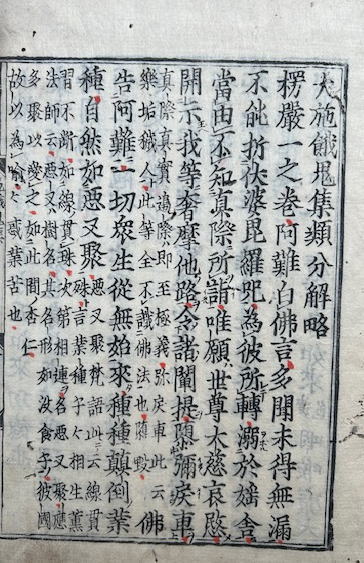 大施餓鬼集類分解略
楞嚴一之卷阿難白佛言多聞未得無漏
不能折伏娑毘羅呪為彼所轉溺於婬舍
當由不知真際所詣唯願世尊大慈哀愍
開示我等奢摩他路令諸闡提隳彌戾車
真際真實邊際即至極義弥戾車此云
樂垢穢人此等全不識佛法也隳
佛
告阿難一切眾生從無始來種種顛倒業
種自然如惡叉聚
惡叉聚梵語此云線貫
珠言業種子々相生熏
習不断如線貫珠次第相連名惡叉聚應
法師云惡叉樹名其名形如没食子彼國
多聚以賣之如此間杏仁
故以為喩々惑業苦也